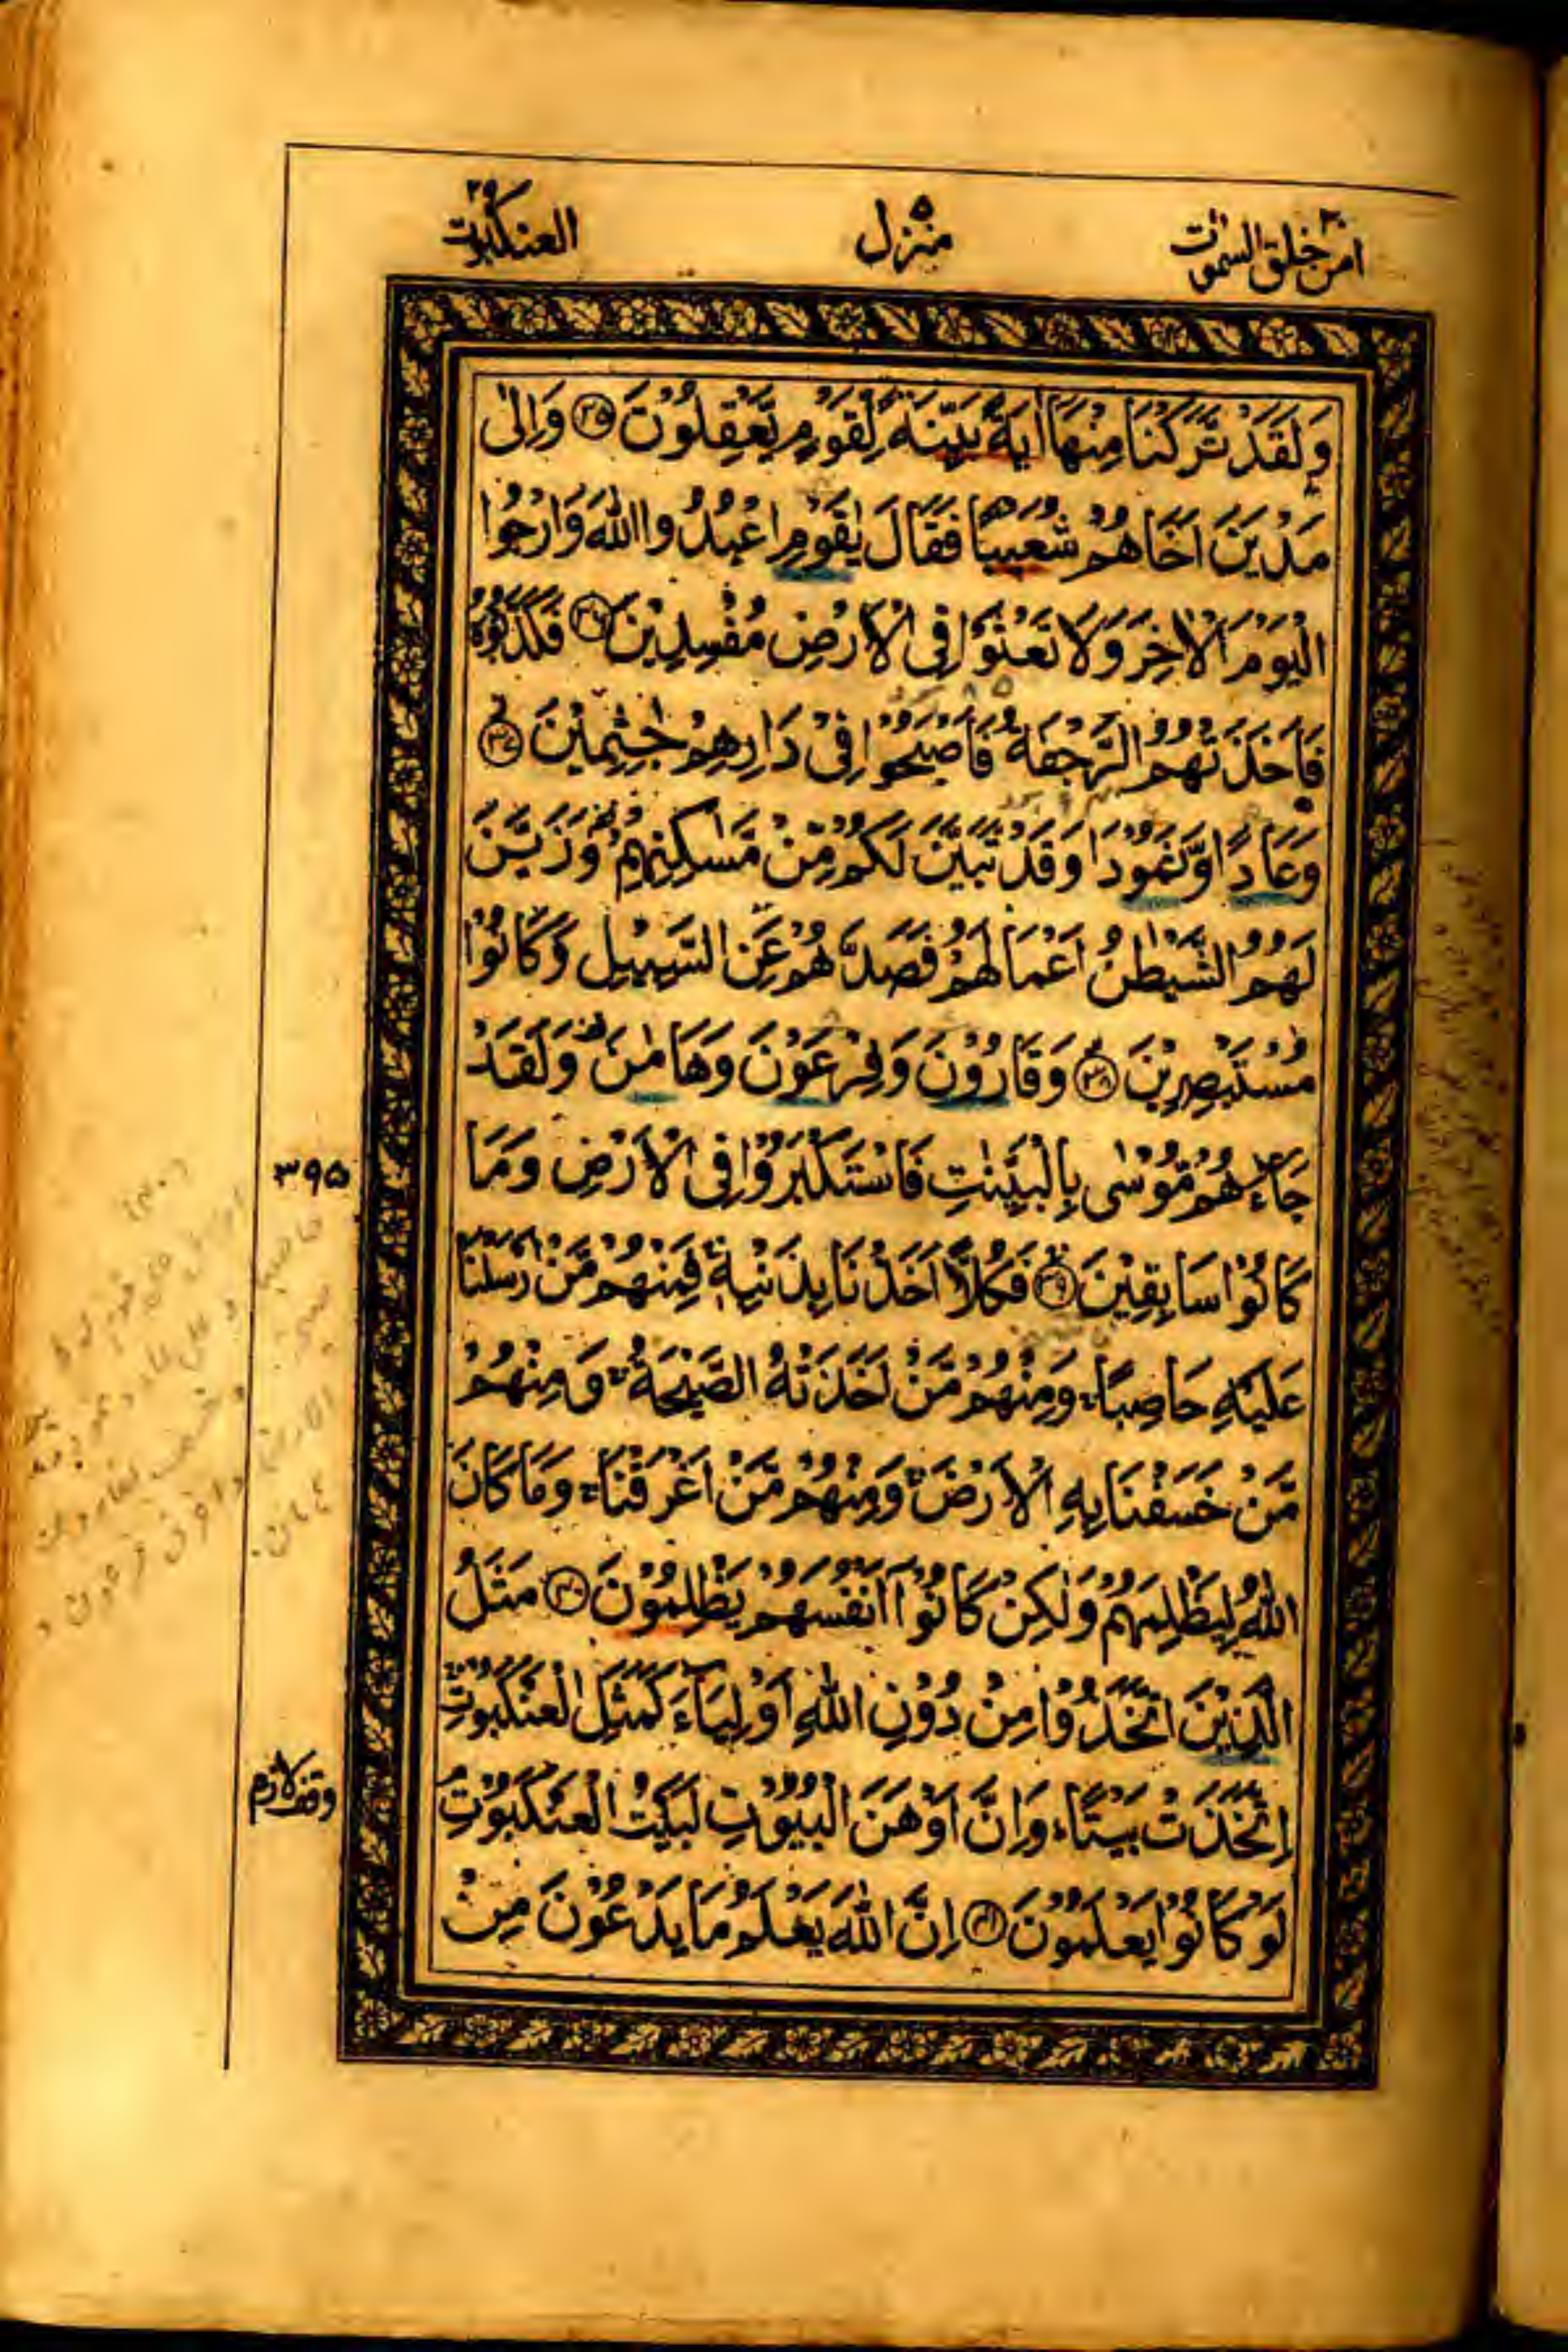 امن خلق السموت ٢٠
منزل ٥
العنكبوت ٢٩
وَلَقَدْ تَّرَكْنَا مِنْهَآ اٰيَةًۢ بَيِّنَةً لِّقَوْمٍ يَّعْقِلُوْنَ ﴿٣٥﴾ وَاِلٰى
مَدْيَنَ اَخَاهُمْ شُعَيْبًا فَقَالَ يٰقَوْمِ اعْبُدُوا اللّٰهَ وَارْجُوا
الْيَوْمَ الْاٰخِرَ وَلَا تَعْثَوْا فِى الْاَرْضِ مُفْسِدِيْنَ ﴿٣٦﴾ فَكَذَّبُوْهُ
فَاَخَذَتْهُمُ الرَّجْفَةُ فَاَصْبَحُوْا فِىْ دَارِهِمْ جٰثِمِيْنَ ﴿٣٧﴾
وَعَادًا وَّثَمُوْدَا۟ وَقَدْ تَّبَيَّنَ لَكُمْ مِّنْ مَّسٰكِنِهِمْ وَزَيَّنَ
لَهُمُ الشَّيْطٰنُ اَعْمَالَهُمْ فَصَدَّهُمْ عَنِ السَّبِيْلِ وَكَانُوْا
مُسْتَبْصِرِيْنَ ﴿٣٨﴾ وَقَارُوْنَ وَفِرْعَوْنَ وَهَامٰنَ وَلَقَدْ
جَآءَهُمْ مُّوْسٰى بِالْبَيِّنٰتِ فَاسْتَكْبَرُوْا فِى الْاَرْضِ وَمَا
كَانُوْا سَابِقِيْنَ ﴿٣٩﴾ فَكُلًّا اَخَذْنَا بِذَنْۢبِهٖ فَمِنْهُمْ مَّنْ اَرْسَلْنَا
عَلَيْهِ حَاصِبًا وَمِنْهُمْ مَّنْ اَخَذَتْهُ الصَّيْحَةُ وَمِنْهُمْ
مَّنْ خَسَفْنَا بِهِ الْاَرْضَ وَمِنْهُمْ مَّنْ اَغْرَقْنَا وَمَا كَانَ
اللّٰهُ لِيَظْلِمَهُمْ وَلٰكِنْ كَانُوْٓا اَنْفُسَهُمْ يَظْلِمُوْنَ ﴿٤٠﴾ مَثَلُ
الَّذِيْنَ اتَّخَذُوْا مِنْ دُوْنِ اللّٰهِ اَوْلِيَآءَ كَمَثَلِ الْعَنْكَبُوْتِ
اِتَّخَذَتْ بَيْتًا وَاِنَّ اَوْهَنَ الْبُيُوْتِ لَبَيْتُ الْعَنْكَبُوْتِ
لَوْ كَانُوْا يَعْلَمُوْنَ ﴿٤١﴾ اِنَّ اللّٰهَ يَعْلَمُ مَا يَدْعُوْنَ مِنْ
٣٩٥
وقف لازم